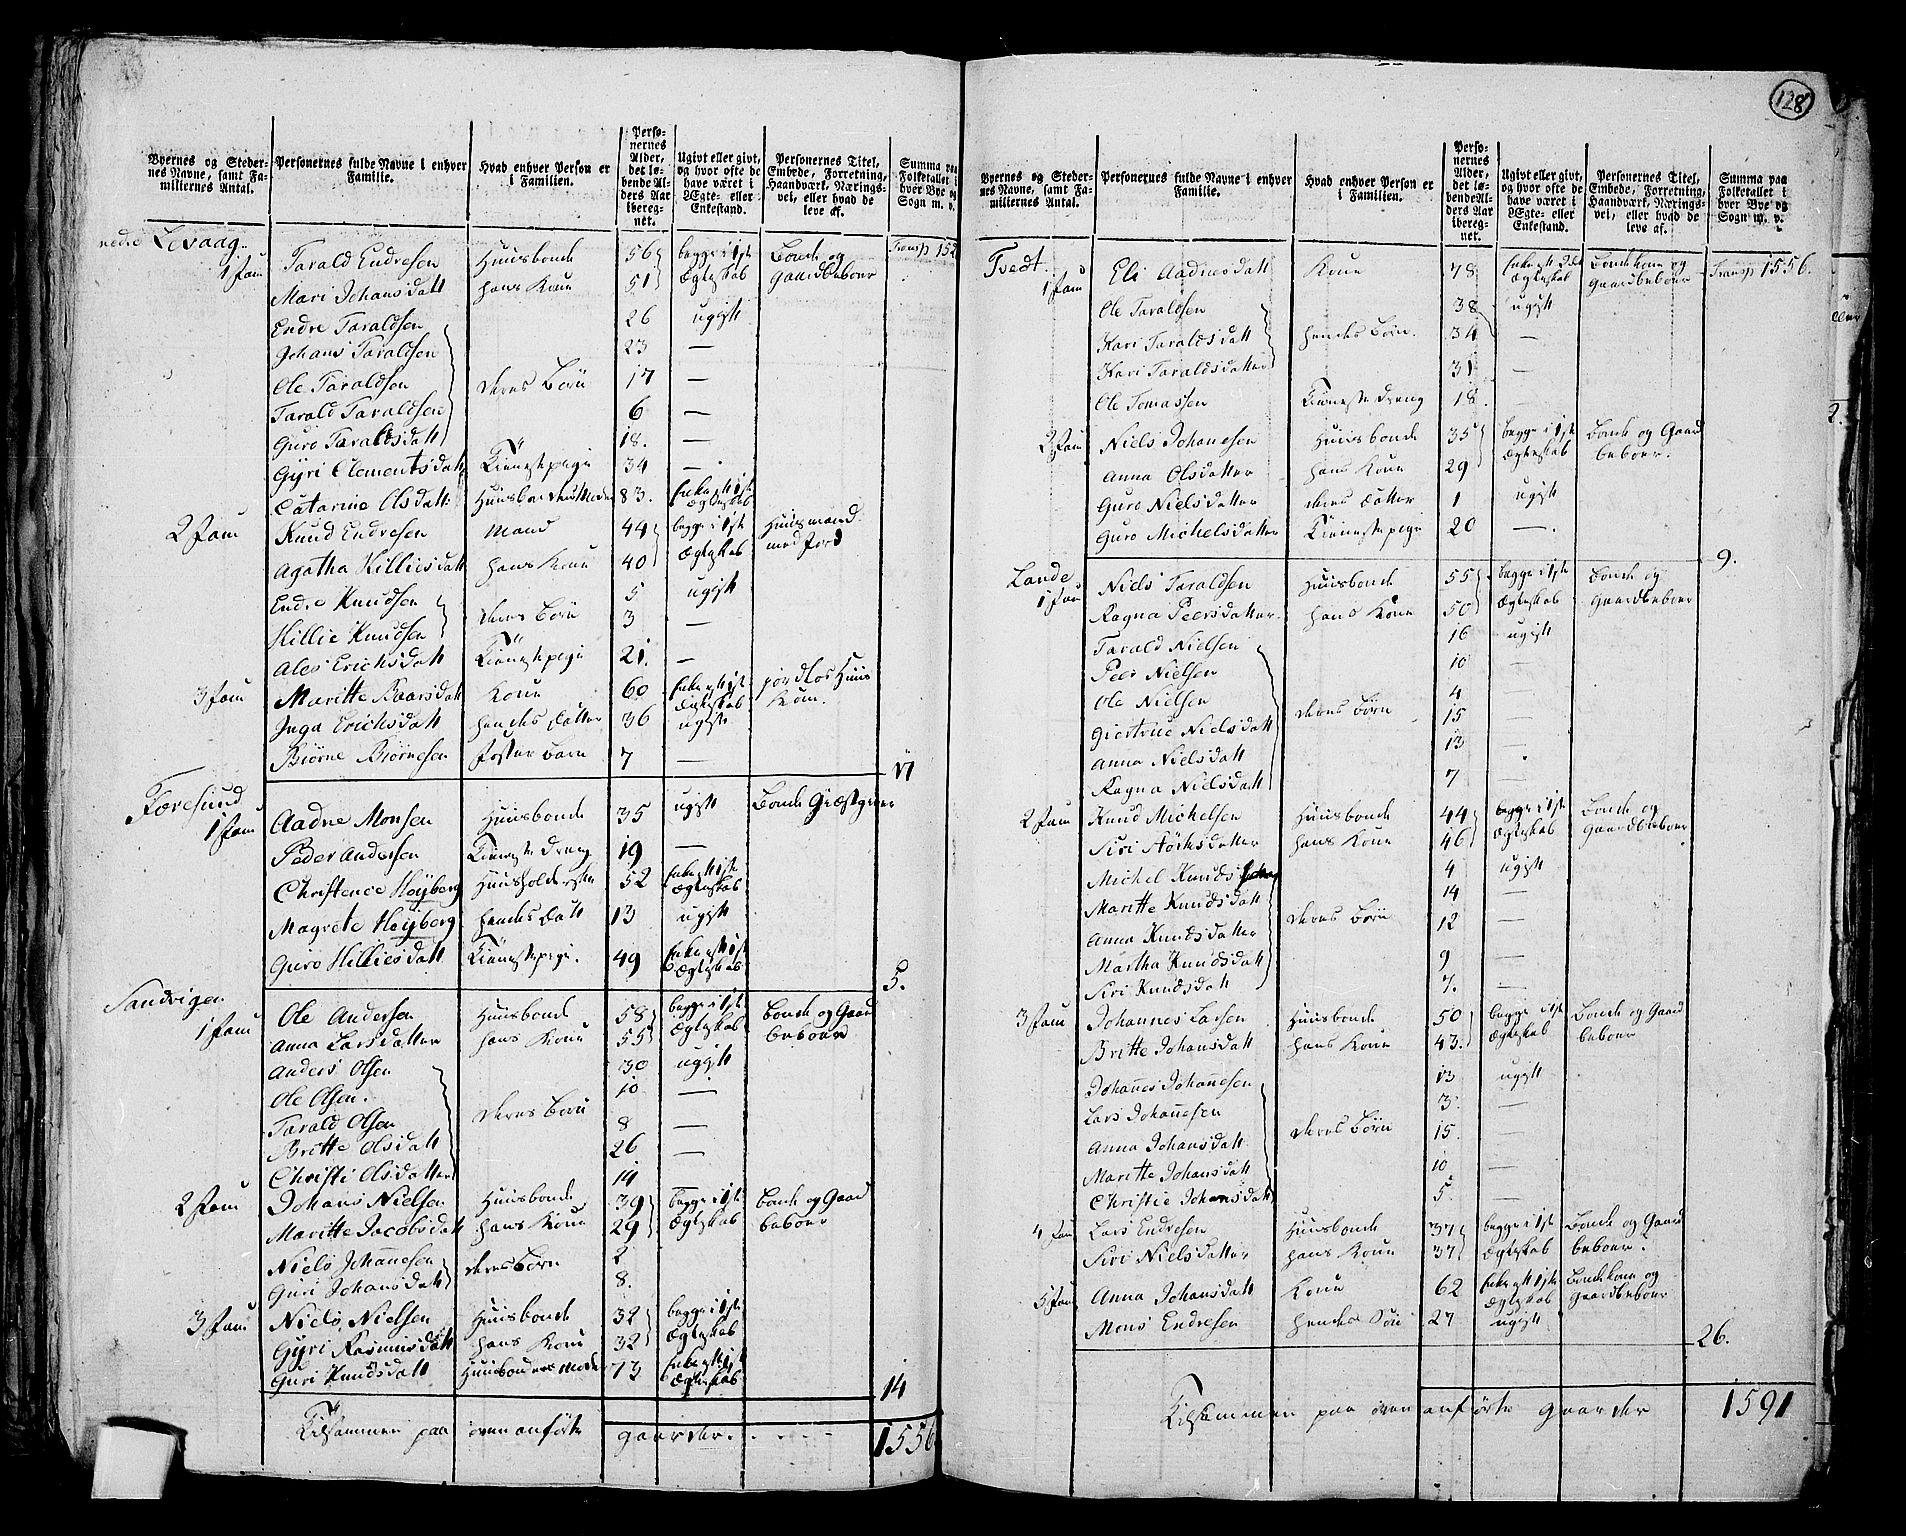 128
Byernes og Steder-
nes Navne, samt Fa-
miliernes Antal.
Personernes fulde Navne i enhver
Familie.
Hvad enhver Person er
i Familien.
Perso-
nernes
Alder,
det lø-
bende Al-
ders Aar
iberegnet.
Ugivt eller givt,
og hvor ofte de
have været i
Ægte- eller
Enkestand.
Personernes Titel,
Embede, Forretning,
Haandværk, Nærings-
vei, eller hvad de
leve af.
Summa paa
Folketallet i
hver Bye og
Sogn m. v.
nedre Levaag
1 Fam Tarald Endresen Huusbonde 56 begge i 1ste Bonde og Transp 152
Mari Johansdatt hans Kone 51 Ægteskab Gaardbeboer
Endre Taraldsen 26 ugift
Johans Taraldsen 23 —
Ole Taraldsen deres Børn 17 —
Tarald Taraldsen 6 —
Guro Taraldsdatt 18. —
Gyri Clementsdatt Tienestepige 34 —
Catarine Olsdatt Huusbondens Moder 83. Enke eft 1ste Ægteskab
2 Fam Knud Endresen Mand 44 begge i 1ste Huusmand
Agatha Killiesdatt hans Kone 40 Ægteskab med Jord
Endre Knudsen 5 ugift
Killie Knudsen deres Børn 3 —
Ales Erichsdatt Tienestepige 21. —
3 Fam Maritte Baarsdatt Kone 60 Enke eft 1ste Ægteskab jordløs Huus
Inga Erichsdatt hendes Datter 36 ugift Kone.
Biørne Biørnesen Foster Barn 7 —
17
Foresund
1 Fam Aadne Monsen Huusbonde 35 ugift Bonde Giæstgiver
Peder Andersen Tieneste Dreng 19 —
Christence Høyberg Huusholderske 52 Enke eft 1ste Ægteskab
Magrete Høyberg hendes Datt 13 ugift
Guro Killiesdatt Tienestepige. 49 Enke eft 1ste Ægteskab
5.
Sandvigen
1 Fam Ole Andersen Huusbonde 58 begge i 1ste Bonde og Gaard
Anna Larsdatter hans Kone 55 Ægteskab beboer
Anders Olsen 30 ugift
Ole Olsen. 10 —
Tarald Olsen deres Børn 8 —
Britte Olsdatt 26 —
Christi Olsdatter 14 —
2 Fam Johans Nielsen Huusbonde 39 begge i 1ste Bonde og Gaard
Maritte Jacobsdatt hans Kone 29 Ægteskab beboer
Niels Johannesen deres Børn 2
Guri Johansdatt 8.
3 Fam Niels Nielsen Huusbonde 32 begge i 1ste
Gyri Rasmusdatt hans Kone 32 Ægteskab
Guri Knudsdatt Huusbondens Moder 73 Enke eft 1ste Ægteskab
14
Tilsammen paa oven anførte Gaarder. 1556
Byernes og Steder-
nes Navne, samt Fa-
miliernes Antal.
Personernes fulde Navne i enhver
Familie.
Hvad enhver Person er
i Familien.
Perso-
nernes
Alder,
det lø-
bende Al-
ders Aar
iberegnet.
Ugivt eller givt,
og hvor ofte de
have været i
Ægte- eller
Enkestand.
Personernes Titel,
Embede, Forretning,
Haandværk, Nærings-
vei, eller hvad de
leve af.
Summa paa
Folketallet i
hver Bye og
Sogn m. v.
Tvedt.
1 Fam Eli Aadnesdatt Kone 78 Enke eft 2det Ægteskab Bondekone og Gaardbeboer Transp 1556.
Ole Taraldsen 38 ugift
Kari Taraldsdatt hendes Børn. 34 —
Kari Taraldsdatter 31 —
Ole Tomassen Tieneste Dreng 18. —
2 Fam Niels Johanesen Huusbonde 35 begge i 1ste Bonde og Gaard
Anna Olsdatter hans Kone 29 Ægteskab beboer.
Guro Nielsdatter deres Datter 1 ugift
Guro Michelsdatter Tienestepige 20 —.
9.
Lande
1 Fam Niels Taraldsen Huusbonde 55 begge i 1ste Bonde og
Ragna Peersdatter hans Kone 50 Ægteskab Gaardbeboer
Tarald Nielsen 16 ugift
Peer Nielsen 10 —
Ole Nielsen 4 —
Giertrue Nielsdatt deres Børn 15 —
Anna Nielsdatt 13 —
Ragna Nielsdatt 7 —
2 Fam Knud Michelsen Huusbonde 44 begge i 1ste Bonde og
Siri Størksdatter hans Kone 46 Ægteskab Gaardbeboer
Michel Knuds 4 ugift
Maritte Knudsdatt 14 —
Anna Knudsdatter deres Børn 12 —
Martha Knudsdatt 9 —
Siri Knudsdatt 7. —
3 Fam Johannes Larsen Huusbonde 50 begge i 1ste Bonde og Gaard
Britte Johansdatt hans Kone 43. Ægteskab beboer
Johannes Johannesen 13 ugift
Lars Johannesen 3. —
Anna Johansdatt deres Børn 15. —
Maritte Johansdatt 10 —
Christie Johansdatt 5. —
4 Fam Lars Endresen Huusbonde 37 begge i 1ste Bonde og Gaard
Siri Nielsdatter hans Kone 37 Ægteskab beboer.
5 Fam Anna Johansdatt Kone 62 Enke eft 1ste Ægteskab Bondekone og Gaardbeboer
Mons Endresen hendes Søn 27 ugift
26.
Tilsammen paa oven anførte Gaarder 1591